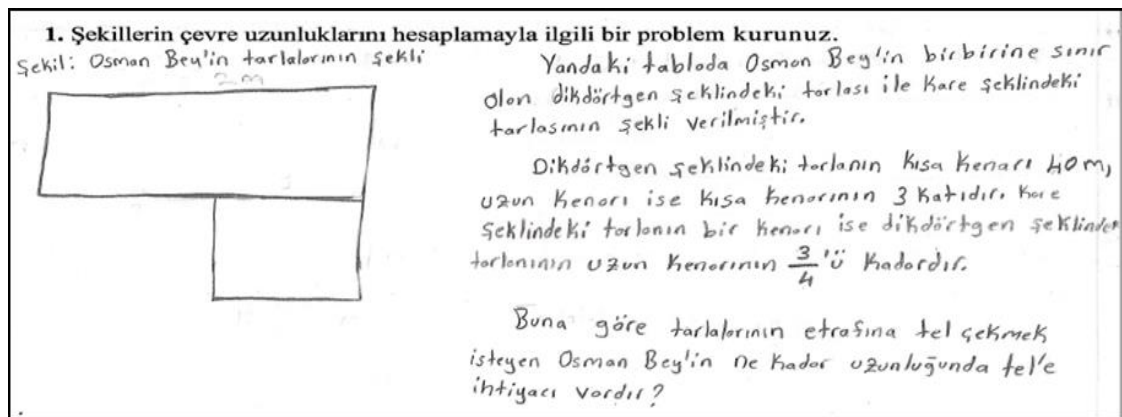 1. Şekillerin çevre uzunluklarını hesaplamayla ilgili bir problem kurunuz.
Şekil: Osman Bey'in tarlalarının şekli
2m
Yandaki tabloda Osman Bey'in birbirine sınır
olan dikdörtgen şeklindeki tarlası ile kare şeklindeki
tarlasının şekli verilmiştir.
Dikdörtgen şeklindeki tarlanın kısa kenarı 40m,
uzun kenarı ise kısa kenarının 3 katıdır. Kare
şeklindeki tarlanın bir kenarı ise dikdörtgen şeklindeki
tarlanının uzun kenarının 3/4'ü kadardır.
Buna göre tarlalarının etrafına tel çekmek
isteyen Osman Bey'in ne kadar uzunluğunda tel'e
ihtiyacı vardır?